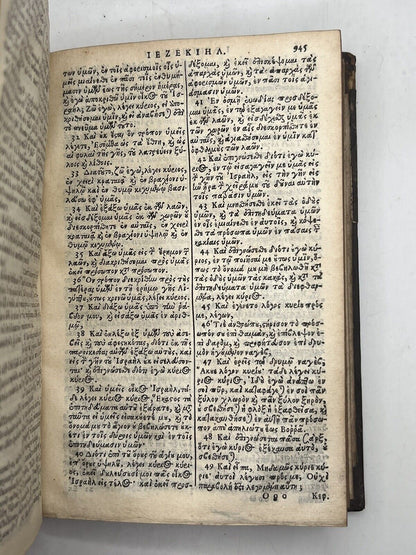 ΙΕΖΕΚΙΗΛ. 945
τῶν ὑμῶν, ἐν τοῖς ἀφορισμοῖς ὑμῶν
ὑμεῖς μιαίνεσθε ἐν πᾶσι τοῖς ἐνθυμή-
μασιν ὑμῶν ἕως τῆς σήμερον ἡμέρας,
καὶ ἐγὼ ἀποκριθῶ ὑμῖν οἶκος τοῦ Ἰσ-
ραήλ; ζῶ ἐγὼ, λέγει κύριος, εἰ ἀπο-
κριθήσομαι ὑμῖν, καὶ εἰ ἀναβήσεται ἐπὶ
τὸ πνεῦμα ὑμῶν τοῦτο.
32 Καὶ οὐκ ἔσται ὃν τρόπον ὑμεῖς
λέγετε, Ἐσόμεθα ὡς τὰ ἔθνη, καὶ ὡς
αἱ φυλαὶ τῆς γῆς, τοῦ λατρεύειν ξύ-
λοις καὶ λίθοις.
33 Διατοῦτο, ζῶ ἐγὼ, λέγει κύριος,
ἐν χειρὶ κραταιᾷ καὶ ἐν βραχίονι ὑ-
ψηλῷ καὶ ἐν θυμῷ κεχυμένῳ βασι-
λεύσω ἐφ' ὑμᾶς,
34 Καὶ ἐξάξω ὑμᾶς ἐκ τῶν λαῶν,
καὶ εἰσδέξομαι ὑμᾶς ἐκ τῶν χωρῶν οὗ
διεσκορπίσθητε ἐν αὐταῖς, ἐν χειρὶ
κραταιᾷ καὶ ἐν βραχίονι ὑψηλῷ καὶ ἐν
θυμῷ κεχυμένῳ.
35 Καὶ ἄξω ὑμᾶς εἰς τὴν ἔρημον τῶν
λαῶν, καὶ διακριθήσομαι πρὸς ὑμᾶς
ἐκεῖ πρόσωπον κατὰ πρόσωπον.
36 Ὃν τρόπον διεκρίθην πρὸς τοὺς
πατέρας ὑμῶν ἐν τῇ ἐρήμῳ γῆς Αἰ-
γύπτου, οὕτως κρινῶ ὑμᾶς, λέγει κύριος.
37 Καὶ διάξω ὑμᾶς ὑπὸ τὴν ῥάβ-
δον μου, καὶ εἰσάξω ὑμᾶς ἐν ἀριθ-
μῷ.
38 Καὶ ἐκλέξω ἐξ ὑμῶν τοὺς ἀσε-
βεῖς καὶ τοὺς ἀφεστηκότας, διότι ἐκ τῆς
παροικεσίας αὐτῶν ἐξάξω αὐτοὺς, καὶ
εἰς τὴν γῆν τοῦ Ἰσραὴλ οὐκ εἰσελεύσον-
ται·
39 Καὶ ὑμεῖς οἶκος Ἰσραὴλ, τά-
δε λέγει κύριος κύριος, Ἕκαστος τὰ
ἐπιτηδεύματα αὐτοῦ ἐξάρατε, καὶ με-
τὰ ταῦτα εἰ ὑμεῖς εἰσακούετέ μου, καὶ τὸ
ὄνομά μου τὸ ἅγιον οὐ βεβηλώσετε οὐκ-
έτι ἐν τοῖς δώροις ὑμῶν καὶ ἐν τοῖς
ἐπιτηδεύμασιν ὑμῶν·
40 Διότι ἐπὶ τοῦ ὄρους τοῦ ἁγίου μου,
ἐπ' ὄρους ὑψηλοῦ, λέγει κύριος κύρι-
ος, ἐκεῖ δουλεύσουσί μοι πᾶς οἶκος
Ἰσραὴλ εἰς τέλος· καὶ ἐκεῖ προσ-
δέξομαι, καὶ ἐκεῖ ἐπισκέψομαι τὰς
ἀπαρχὰς ὑμῶν, καὶ τὰς ἀπαρχὰς τῶν
ἀφορισμῶν ὑμῶν ἐν πᾶσι τοῖς ἁγιά-
σμασιν ὑμῶν.
41 Ἐν ὀσμῇ εὐωδίας προσδέξομαι
ὑμᾶς, ἐν τῷ ἐξαγαγεῖν με ὑμᾶς
ἐκ τῶν λαῶν, καὶ εἰσδέχεσθαι ὑμᾶς ἐκ
τῶν χωρῶν ἐν αἷς διεσκορπίσθητε ἐν
αὐταῖς, καὶ ἁγιασθήσομαι ἐν ὑμῖν κατ'
ὀφθαλμοὺς τῶν λαῶν.
42 Καὶ ἐπιγνώσεσθε διότι ἐγὼ κύ-
ριος, ἐν τῷ εἰσαγαγεῖν με ὑμᾶς εἰς τὴν
γῆν τοῦ Ἰσραὴλ, εἰς τὴν γῆν εἰς ἣν
ᾖρα τὴν χεῖρά μου τοῦ δοῦναι αὐτὴν
τοῖς πατράσιν ὑμῶν.
43 Καὶ μνησθήσεσθε ἐκεῖ τὰς ὁδοὺς
ὑμῶν, καὶ τὰ ἐπιτηδεύματα ὑμῶν ἐν
οἷς ἐμιαίνεσθε ἐν αὐτοῖς, καὶ κόψεσ-
θε τὰ πρόσωπα ὑμῶν ἐν πάσαις ταῖς
κακίαις ὑμῶν.
44 Καὶ ἐπιγνώσεσθε διότι ἐγὼ κύ-
ριος, ἐν τῷ ποιῆσαί με οὕτως ὑμῖν, ὅ-
πως τὸ ὄνομά μου μὴ βεβηλωθῇ κα-
τὰ τὰς ὁδοὺς ὑμῶν τὰς κακὰς, καὶ κα-
τὰ τὰ ἐπιτηδεύματα ὑμῶν τὰ διεφθαρ-
μένα, λέγει κύριος.
45 Καὶ ἐγένετο λόγος κυρίου πρός
με, λέγων,
46 Υἱὲ ἀνθρώπου, στήρισον τὸ πρόσω-
πόν σου ἐπὶ Θαιμὰν, καὶ ἐπίβλεψον ἐ-
πὶ Δαρὼμ, καὶ προφήτευσον ἐπὶ δρυ-
μὸν ἡγούμενον ναγὲβ,
47 Καὶ ἐρεῖς τῷ δρυμῷ ναγὲβ,
Ἄκουε λόγον κυρίου· τάδε λέγει κύ-
ριος κύριος, Ἰδοὺ ἐγὼ ἀνάπτω ἐν
σοὶ πῦρ, καὶ καταφάγεται ἐν σοὶ πᾶν
ξύλον χλωρὸν καὶ πᾶν ξύλον ξηρόν·
οὐ σβεσθήσεται ἡ φλὸξ ἡ ἐξαφθεῖσα, καὶ
κατακαυθήσεται ἐν αὐτῇ πᾶν πρόσω-
πον ἀπὸ ἀπηλιώτου ἕως Βορρᾶ.
48 Καὶ ἐπιγνώσεται πᾶσα σὰρξ,
ὅτι ἐγὼ κύριος ἐξέκαυσα αὐτὸ, οὐ
σβεσθήσεται.
49 Καὶ εἶπα, Μηδαμῶς κύριε κύ-
ριε· αὐτοὶ λέγουσι πρός με, Οὐχὶ
παραβολή ἐστι λεγομένη αὕτη;
Ο ο ο Κεφ.